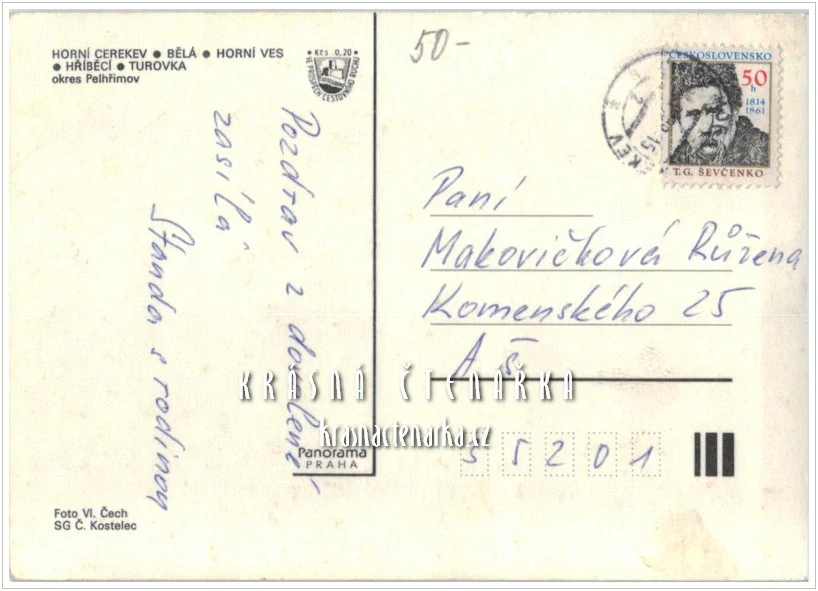 HORNÍ CEREKEV ● BĚLÁ ● HORNÍ VES
● HŘÍBĚCÍ ● TUROVKA
okres Pelhřimov
Kčs 0,20
VE PROSPĚCH CESTOVNÍHO RUCHU
50-
ČESKOSLOVENSKO
50
h
1814
1861
T.G. ŠEVČENKO
Pozdrav z dovolené
zasílá
Standa s rodinou
Paní
Makovičková Růžena
Komenského 25
Aš
KRÁSNÁ ČTENÁŘKA
krasnactenarka.cz
55201
Panorama
PRAHA
Foto Vl. Čech
SG Č. Kostelec